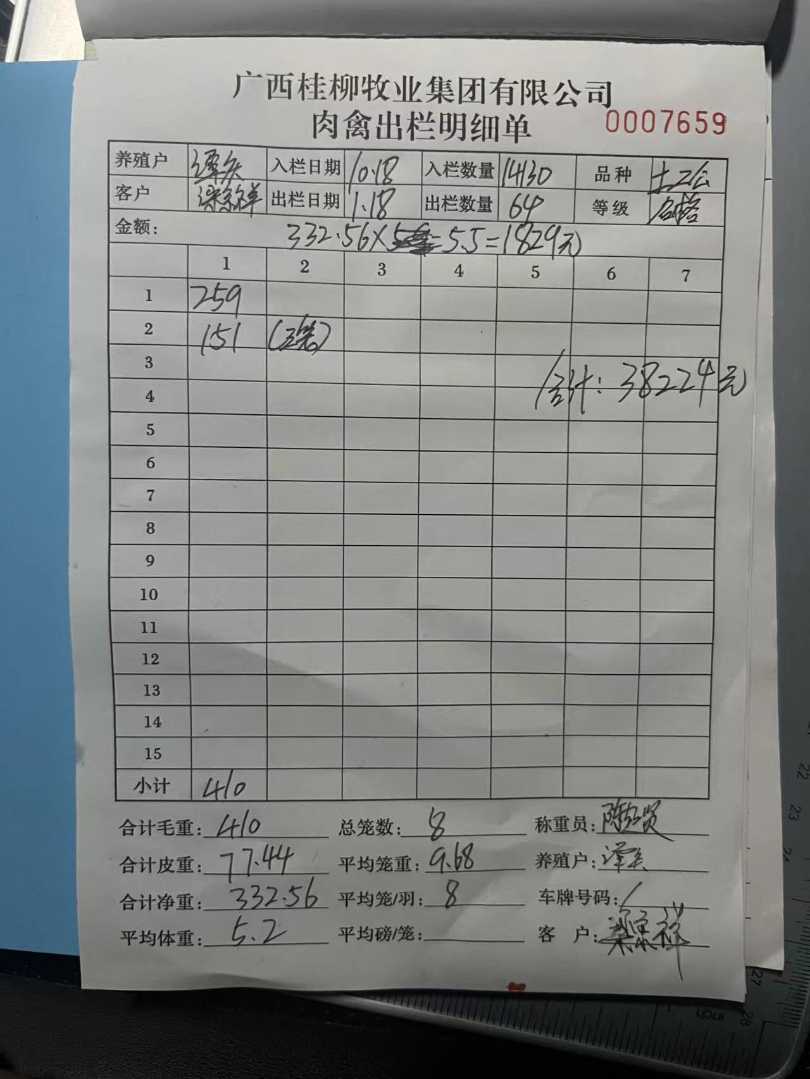 广西桂柳牧业集团有限公司
肉禽出栏明细单 0007659
养殖户 入栏日期 10.18 入栏数量 14130 品种
客户 出栏日期 1.18 出栏数量 64 等级 合格
金额: 332.56× 5.5=1829元
1 2 3 4 5 6 7
1 259
2 151
3 合计: 38224元
4
5
6
7
8
9
10
11
12
13
14
15
小计 410
合计毛重: 410 总笼数: 8 称重员:
合计皮重: 77.44 平均笼重: 9.68 养殖户:
合计净重: 332.56 平均笼/羽: 8 车牌号码: /
平均体重: 5.2 平均磅/笼: 客 户:
22
23
24
27
28
inch